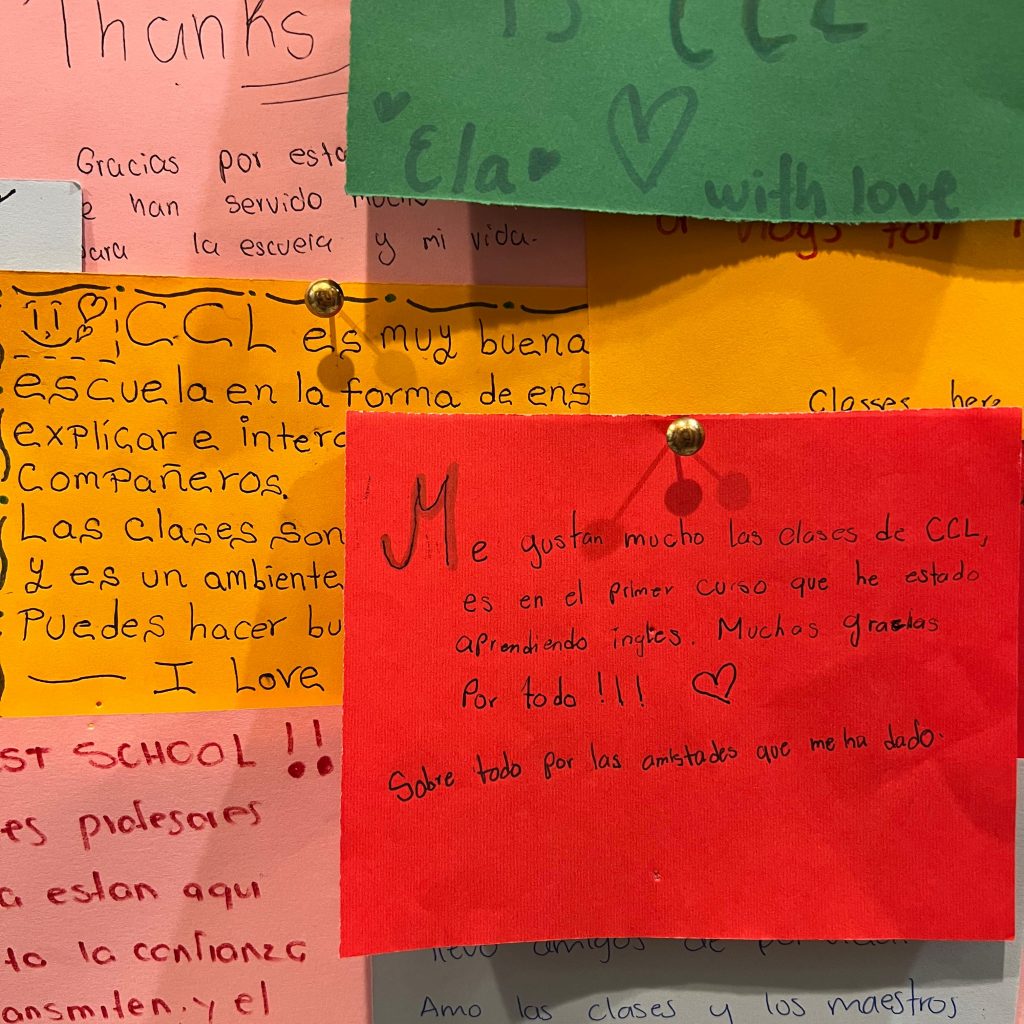 Thanks
Gracias por esta
han servido
la escuela y mi vida.
is CCL
Ela
with love
vlogs for
classes here
CCL es muy buena
escuela en la forma de ens
explicar e interc
compañeros.
Las clases son
y es un ambiente
Puedes hacer bu
I Love
Me gustan mucho las clases de CCL,
es en el primer curso que he estado
aprendiendo ingles. Muchas gracias
Por todo !!! ♡
Sobre todo por las amistades que me ha dado.
ST SCHOOL !!
es profesores
a estan aqui
to la confianza
ansmiten. y el
llevo amigos de por
Amo las clases y los maestros